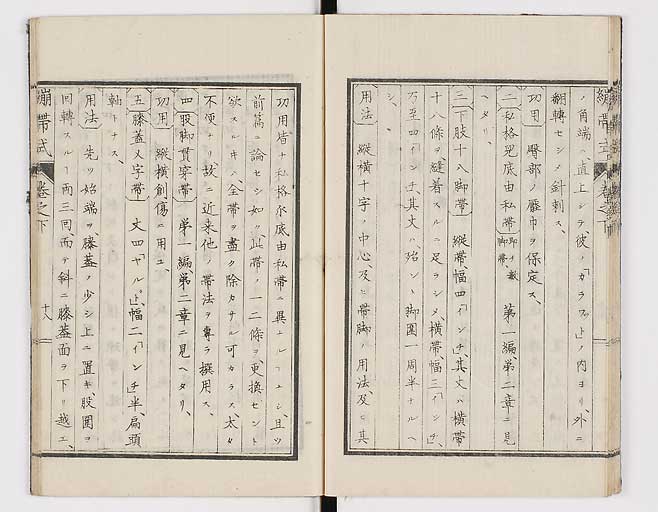 ノ角端ヲ直上シテ彼ノ「カラス」上ノ内ヨリ外ニ
翻轉セシメ針刺ス、
功用 臀部ノ壓巾ヲ保定ス、
二 私格兒底由私帶 即十數脚帶、 第一編第二章ニ見
ヘタリ、
三 下肢十八脚帶 縱帶、幅四「インチ」、其丈ハ橫帶
十八條ヲ縫着スルニ足ラシメ、橫帶、幅三「インチ」、
乃至四「インチ」其丈ハ、殆ント脚圍一周半ナルヘ
シ、
用法 縱橫十字ノ中心及ヒ帶脚ノ用法、及ヒ其
功用皆ナ私格爪底由私帶ニ異ナルナシ、且ツ
前篇ニ論セシ如ク、此帶ノ一二條ヲ更換セント
欲スルキハ全帶ヲ盡ク除カサル可カラス、太タ
不便ナリ、故ニ近来他ノ帶法ヲ專ラ撰用ス、
四 股脚貫穿帶 第一編第二章ニ見ヘタリ、
功用 縱橫創傷ニ用ユ、
五 膝蓋乂字帶 丈四「ヤルド」、幅二「インチ」半、扁頭
軸トナス、
用法 先ツ始端ヲ、膝蓋ノ少シ上ニ置キ股圍ヲ
回轉スルヿ兩三回而テ斜ニ膝蓋面ヲ下リ越エ、
繃帶式 卷之下 十八